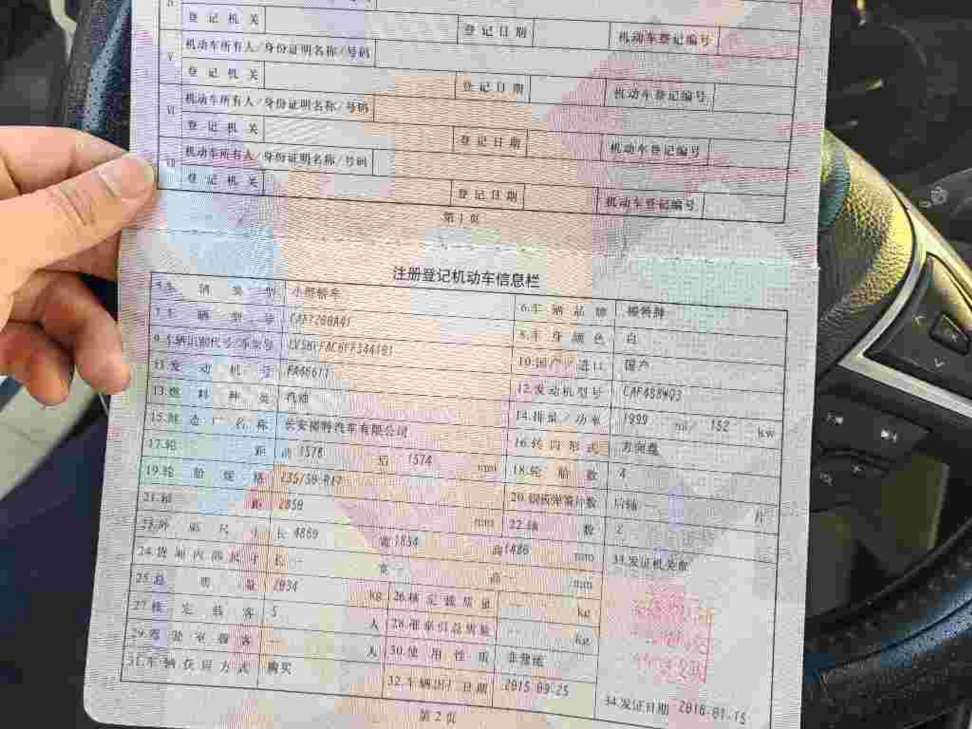 登记机关 登记日期 机动车登记编号
V 机动车所有人/身份证明名称/号码
登记机关 登记日期 机动车登记编号
VI 机动车所有人/身份证明名称/号码
登记机关 登记日期 机动车登记编号
VII 机动车所有人/身份证明名称/号码
登记机关 登记日期 机动车登记编号
第1页
注册登记机动车信息栏
5.车辆类型 小型轿车 6.车辆品牌 福特牌
7.车辆型号 8.车身颜色 白
9.车辆识别代号/车架号 10.国产/进口 国产
11.发动机号 12.发动机型号 CAF488WQ3
13.燃料种类 汽油 14.排量/功率 1999 ml/ 152 kw
15.制造厂名称 长安福特汽车有限公司 16.转向形式 方向盘
17.轮距 前 1578 后 1574 mm 18.轮胎数 4
19.轮胎规格 235/50 R17 20.钢板弹簧片数 后轴 片
21.轴距 2850 mm 22.轴数 2
23.外廓尺寸 长 4869 宽 1834 高 1486 mm 33.发证机关章
24.货厢内部尺寸 长 宽 高 mm
25.总质量 2034 kg 26.核定载质量 kg
27.核定载客 5 人 28.准牵引总质量 kg
29.驾驶室载客 人 30.使用性质 非营运
31.车辆获得方式 购买 32.车辆出厂日期 2015.09.25 34.发证日期 2016.01.15
第2页